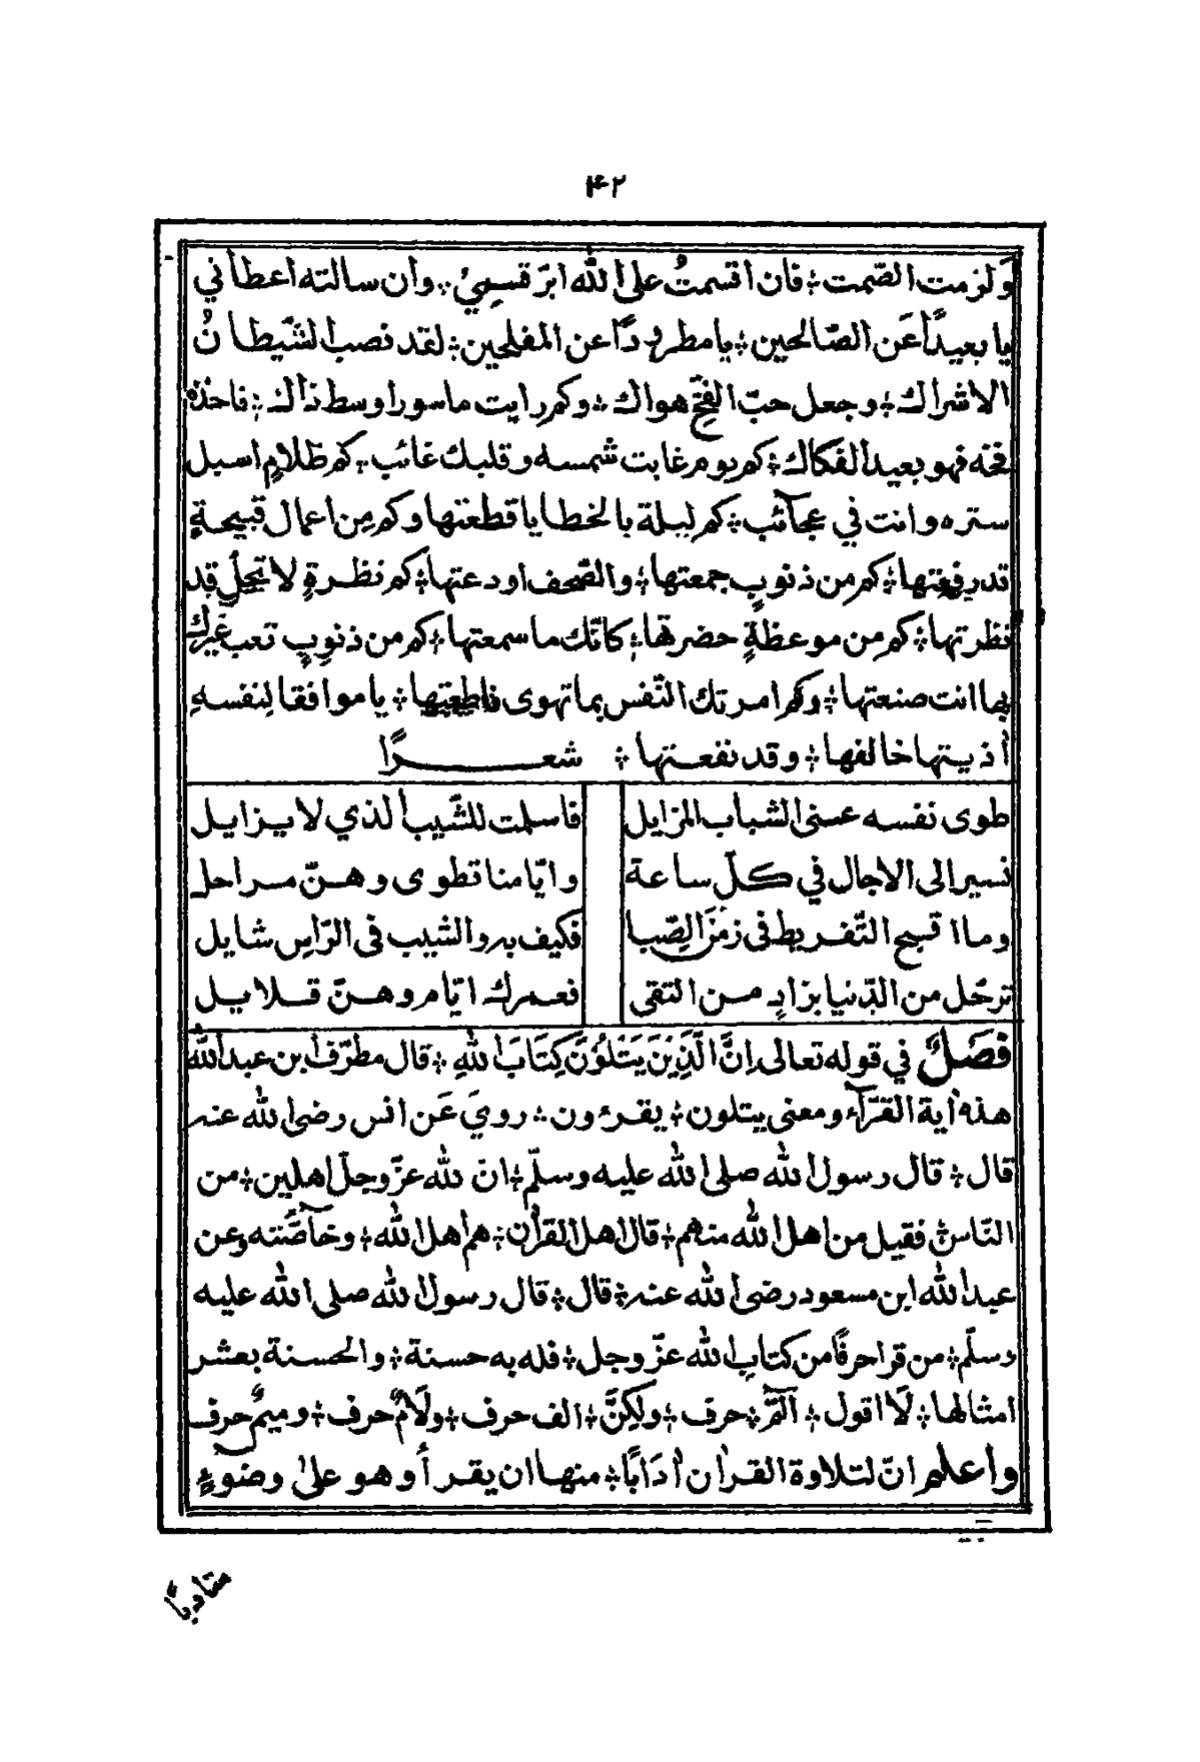 ۴۲
وَلزمت الصّمت ؞ فان اقسمتُ على الله ابرّ قسمِيْ ؞ وان سالته اعطاني
يا بعيدًا عَن الصّالحين ؞ يا مطرودًا عن المفلحين ؞ لقد نصب الشّيطانُ
الاشراك ؞ وجعل حبّ الفخّ هواك ؞ وكم رايت ماسورا وسط ذاك ؞ فاخذه
فخه فهو بعيد الفكاك ؞ كم يوم غابت شمسه وقلبك غائب ؞ كم ظلامٍ اسبل
ستره وانت في عجآئب ؞ كم ليلة بالخطايا قطعتها وكم مِن اعمال قبيحةٍ
قد رفعتها ؞ كم من ذنوبٍ جمعتها ؞ والصّحف اودعتها ؞ كم نظرةٍ لا تحلّ قد
نظرتها ؞ كم من موعظةٍ حضرتها ؞ كانّك ما سمعتها ؞ كم من ذنوبٍ تعب غيرك
بها انت صنعتها ؞ وكم امرتك النّفس بما تهوى فاطعتها ؞ يا موافقا لنفسهِ
أذيتها خالفها ؞ وقد نفعتها ؞ شعـــــرًا
طوى نفسه عنى الشباب المزايل فاسلمت للشّيب الذي لا يزايل
نسير الى الاجال في كلّ ساعة وايّامنا تطوى وهنّ مراحل
وما اقبح التّفريط فى زمَن الصِّبا فكيف به والشيب فى الرّاسِ شايل
ترحّل من الدّنيا بزادٍ من التقى فعمرك ايّام وهنّ قلايل
فَصَلٌ في قوله تعالى اِنَّ الَّذِيْنَ يَتْلُوْنَ كِتَابَ اللهِ ؞ قال مطرّف ابن عبد الله
هذه أية القرّآء ومعنى يتلون ؞ يقرءون ؞ رويَ عَن انس رضى الله عنه
قال ؞ قال رسول الله صلى الله عليه وسلّم ؞ انّ لله عزّ وجلّ اهلين ؞ من
النّاس ؞ فقيل من اهل الله منهم ؞ قال اهل القرأن ؞ هم اهل الله ؞ وخآصَّته وعن
عبد الله ابن مسعود رضى الله عنه ؞ قال ؞ قال رسول الله صلى الله عليه
وسلّم ؞ من قرا حرفًا من كتابِ الله عزّ وجل ؞ فله به حسنة ؞ والحسنة بعشر
امثالها ؞ لَا اقول ؞ آلٓمّٓ ؞ حرف ؞ ولكِنَّ ؞ الف حرف ؞ ولَامٌ حرف ؞ وميمٌ حرف
واعلم انّ لتلاوة القرأن أدَابًا ؞ منها ان يقرأ وهو على وضوءٍ
متادبًا